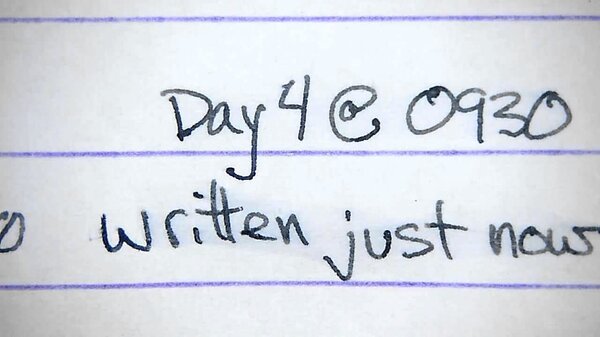 Day 4 @ 0930
written just now